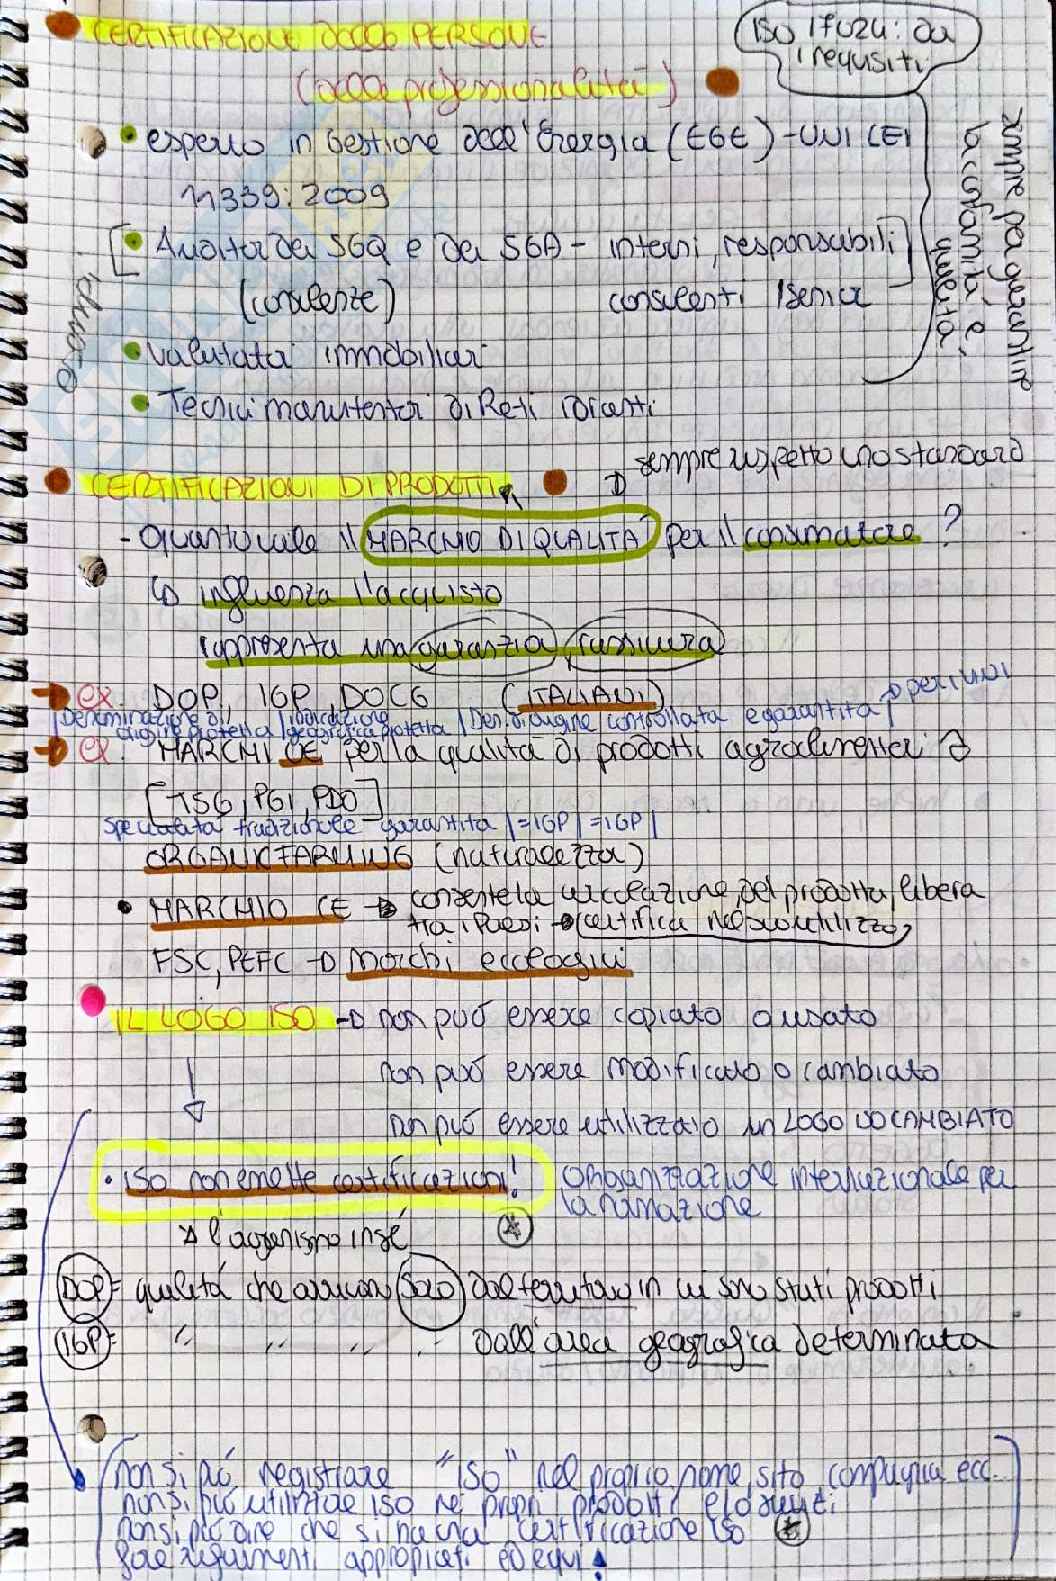 CERTIFICAZIONE DELLE PERSONE
(delle professionalità)
ISO 17024: da
i requisiti
sempre per garantire
la conformità e
qualità
esperto in Gestione dell'Energia (EGE) - UNI CEI
11339:2009
Auditor dei SGQ e dei SGA - interni, responsabili
(consulenze) consulenti /senior
valutatori immobiliari
Tecnici manutentori di Reti idranti
CERTIFICAZIONI DI PRODOTTI
sempre rispetto uno standard
- Quanto vale il MARCHIO DI QUALITÀ per il consumatore ?
influenza l'acquisto
rappresenta una garanzia, rassicura
ex. DOP, IGP, DOCG (ITALIANI)
per i, UNI
Denominazione di origine protetta | indicazione geografica protetta | Den. di origine controllata e garantita
ex. MARCHI CE per la qualità di prodotti agroalimentari
[TSG, PGI, PDO]
specialità tradizionale garantita | =IGP | =IGP |
ORGANIC FARMING (naturalezza)
• MARCHIO CE → consente la circolazione del prodotto, libera
tra i Paesi → certifica nel suo utilizzo
FSC, PEFC → Marchi ecologici
IL LOGO ISO → non può essere copiato o usato
non può essere modificato o cambiato
non può essere utilizzato un LOGO CAMBIATO
• ISO non emette certificazioni! Organizzazione internazionale per
la normazione
l'organismo in sé
DOP = qualità che assicurano SOLO dal territorio in cui sono stati prodotti
IGP = " " " " dall'area geografica determinata
non si può registrare "ISO" nel proprio nome, sito, compagnia ecc.
non si può utilizzare ISO nei propri prodotti e documenti
non si può dire che si ha una certificazione ISO
fare riferimenti appropriati ed equi!